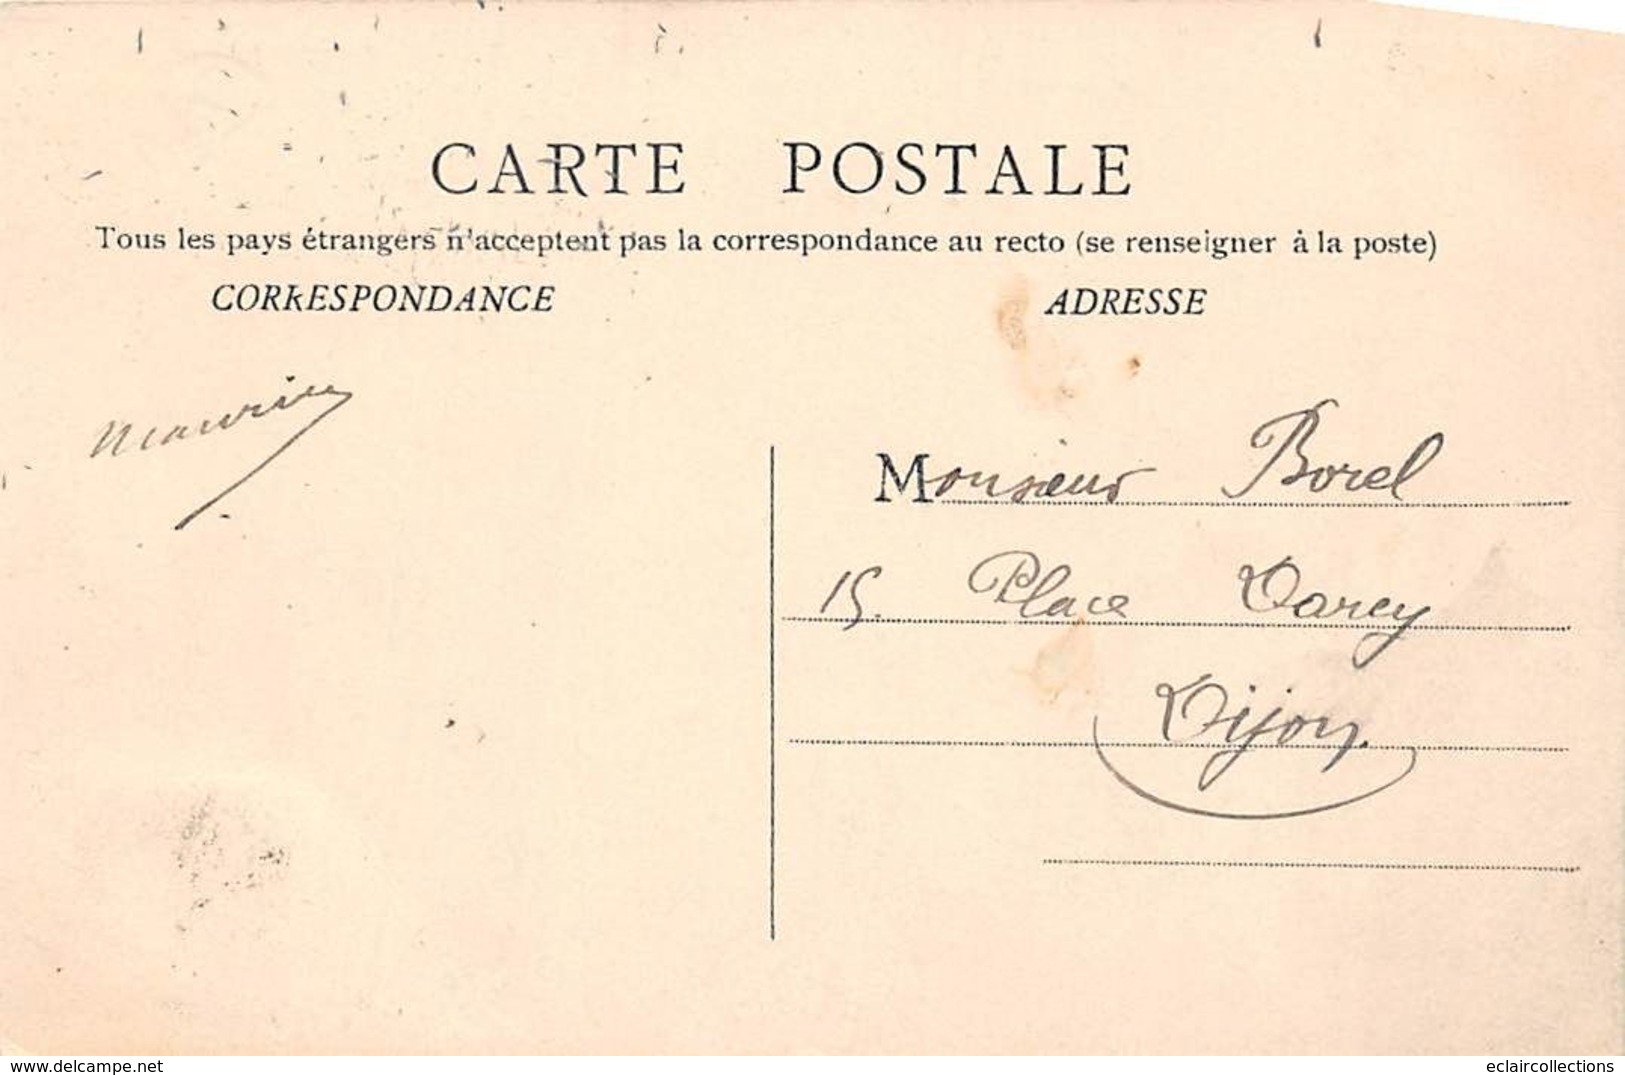 CARTE POSTALE
Tous les pays étrangers n'acceptent pas la correspondance au recto (se renseigner à la poste)
CORRESPONDANCE
ADRESSE
Maurice
Monsieur Borel
15. Place Darcy
Dijon.
eclaircollections